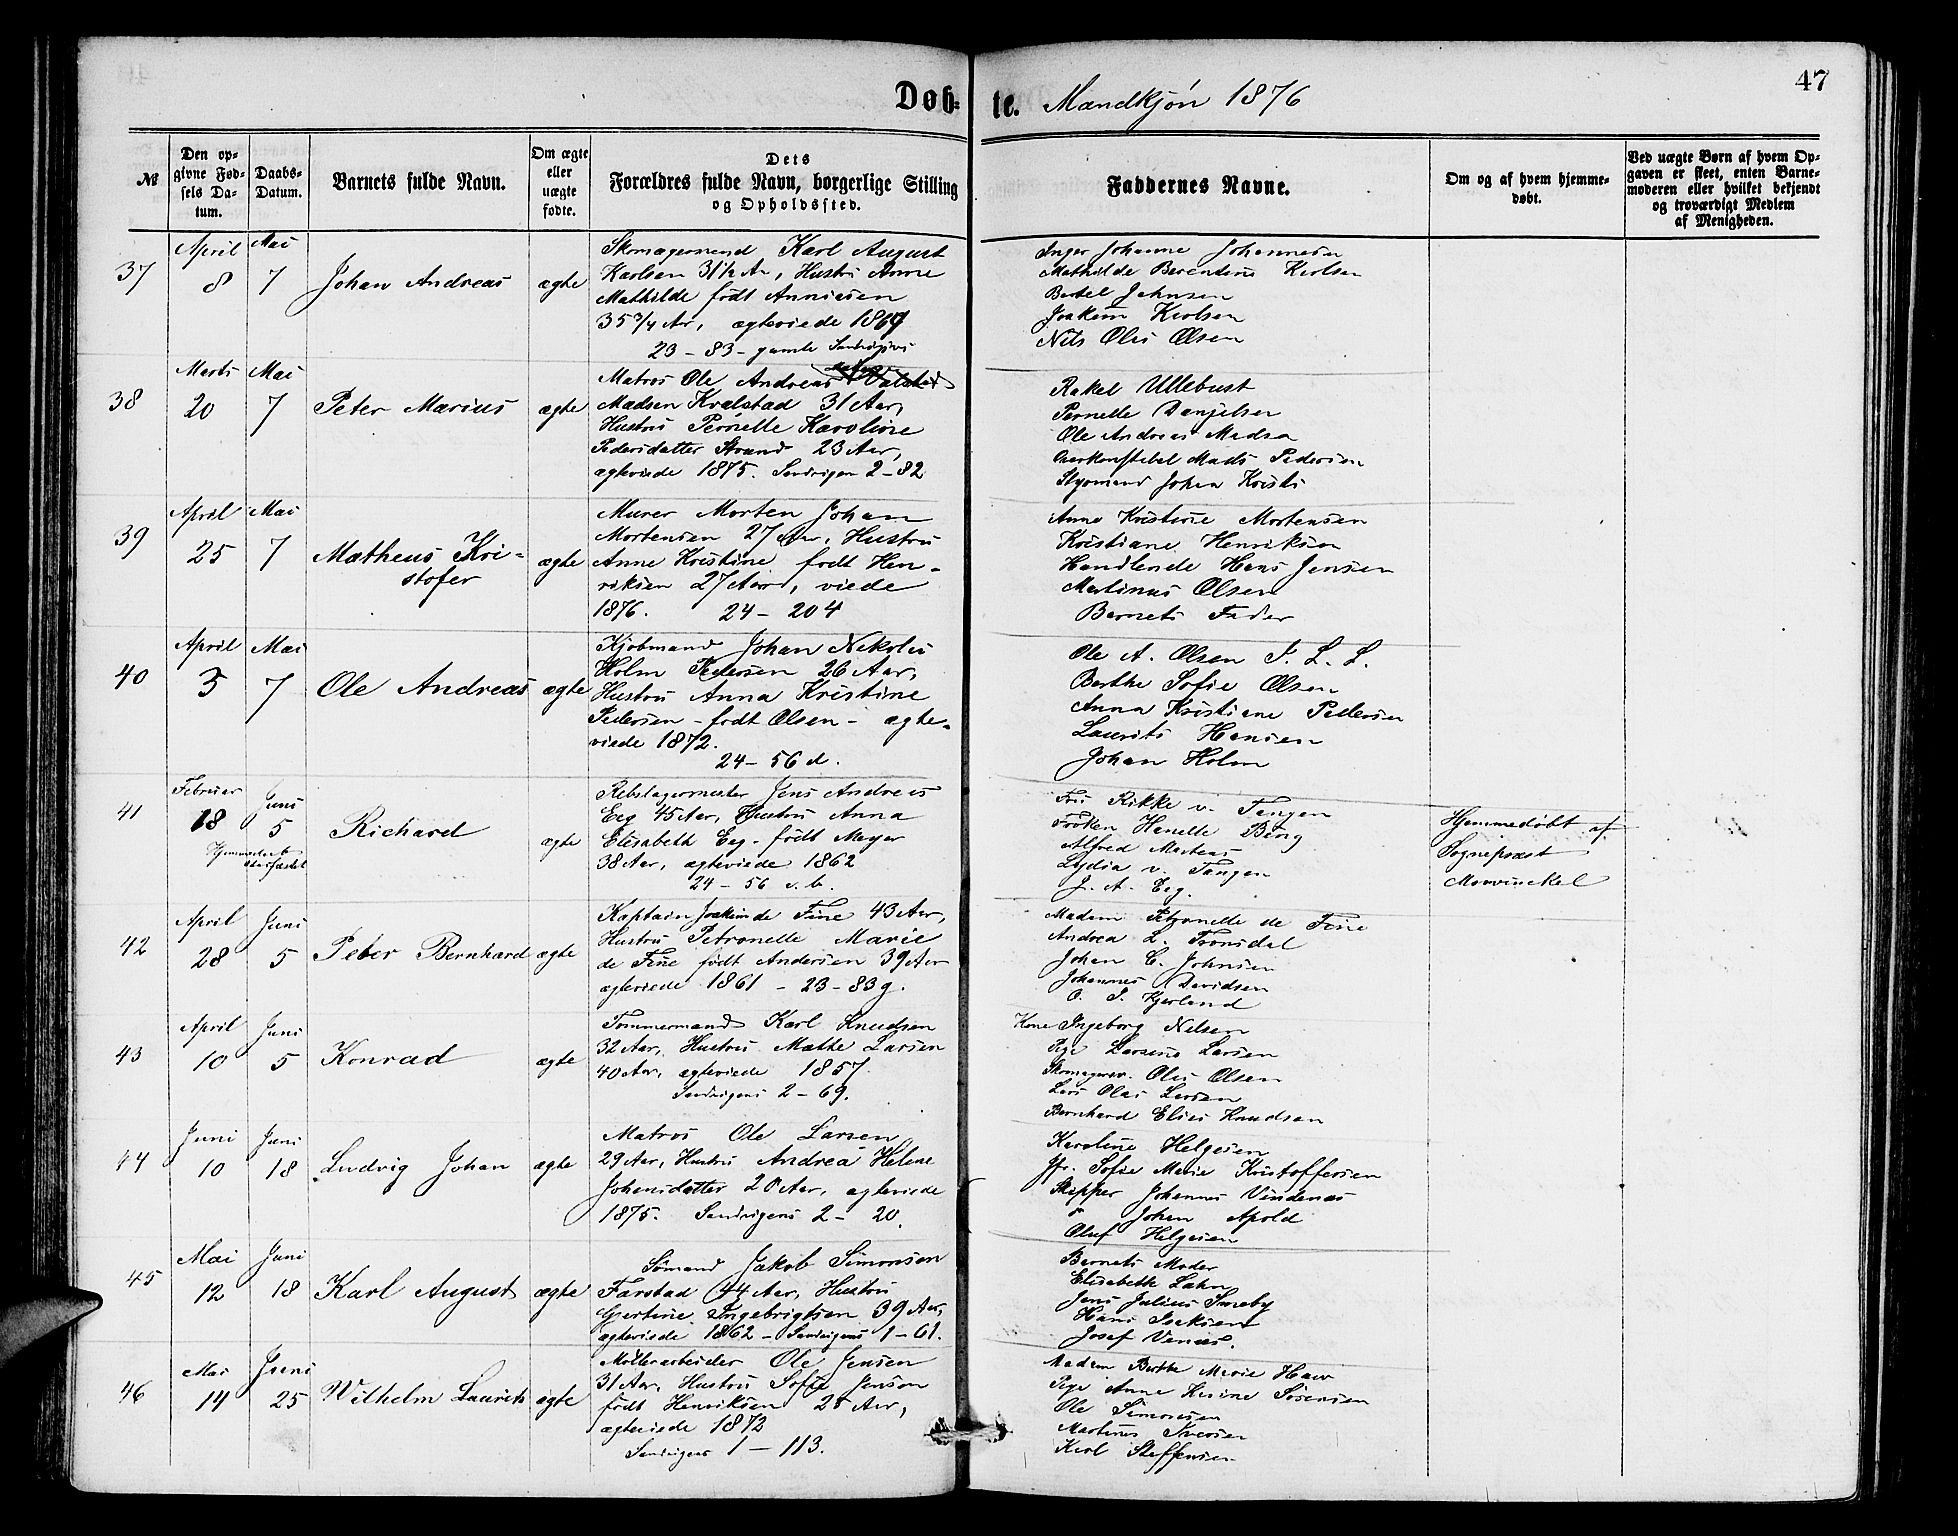 47
Døb- te. Mandkjøn 1876
№
Den op-
givne Fød-
sels Da-
tum.
Daabs-
Datum.
Barnets fulde Navn.
Om ægte
eller
uægte
fødte.
Dets
Forældres fulde Navn, borgerlige Stilling
og Opholdssted.
Faddernes Navne.
Om og af hvem hjemme-
døbt.
Ved uægte Børn af hvem Op-
gaven er skeet, enten Barne-
moderen eller hvilket bekjendt
og troværdigt Medlem
af Menigheden.
37
April
8
Mai
7
Johan Andreas
ægte
Skomagersvend Karl August
Karlsen 31½ Ar, Hustru Anne
Mathilde født Anniasen
35¾ Ar, ægteviede 1869
23 - 83 - gamle
Inger Johanne Johannesen
Mathilde Berentine Karlsen
Bertel Johnsen
Joakim Karlsen
Nils Olai Olsen
38
Marts
20
Mai
7
Peter Marius
ægte
Matros Ole Andreas
Madsen Kvalstad 31 Aar,
Hustru Pernelle Karoline
Pedersdatter Strand 23 Aar,
ægteviede 1875. Sandvigen 2-82
Rakel Ullebust
Pernelle Danjelsen
Ole Andreas Madsen
Overkonstabel Mads Pedersen
Styrmand Johan Kristi
39
April
25
Mai
7
Matheus Kri-
stofer
ægte
Murer Morten Johan
Mortensen 27 Ar, Hustru
Anne Kristine født Hen-
riksen 27 Aar, viede
1876. 24 - 204
Anne Kristine Mortensen
Kristiane Henriksen
Handlende Hans Jensen
Martinus Olsen
Barnets Fader
40
April
3
Mai
7
Ole Andreas
ægte
Kjøbmand Johan Nikolai
Holm Pedersen 26 Aar,
Hustru Anna Kristine
Pedersen - født Olsen - ægte-
viede 1872.
24 - 56 d.
Ole A. Olsen S. L. L.
Berthe Sofie Olsen
Anna Kristiane Pedersen
Laurits Hansen
Johan Holm
41
Februar
18
Juni
5
Richard
ægte
Rebslagermester Jens Andreas
Eeg 45 Aar, Hustru Anna
Elisabeth Eeg - født Meyer
38 Aar, ægteviede 1862
24 - 56 v. b.
Fru Rikke v. Tangen
Frøken Hanette Bing
Alfred Martens
Lydia v. Tangen
J. A. Eeg.
Hjemmedøbt af
Sognepræst
Mowinckel
42
April
28
Juni
5
Peter Bernhard
ægte
Kaptain Joakim de Fine 43 Aar,
Hustru Petronelle Marie
de Fine født Andersen 39 Aar
ægteviede 1861 - 23 - 83g.
Madam Petronelle de Fine
Andrea L. Tronsdal
Johan C. Johnsen
Johannes Davidsen
O. S. Kjerland
43
April
10
Juni
5
Konrad
ægte
Tømmermand Karl Knudsen
32 Aar, Hustru Mathe Larsen
40 Aar, ægteviede 1857.
Sandvigens 2 - 69.
Kone Ingeborg Nilsen
Pige Larsine Larsen
Skomagersv. Olai Olsen
Lars Olai Larsen
Bernhard Elias Knudsen
44
Juni
10
Juni
18
Ludvig Johan
ægte
Matros Ole Larsen
29 Aar, Hustru Andrea Helene
Johansdatter 20 Aar, ægteviede
1875. Sandvigens 2 - 20.
Karoline Helgesen
Jfr. Sofie Marie Kristoffersen
Skipper Johannes Vindenes
" Johan Apold
Oluf Helgesen
45
Mai
12
Juni
18
Karl August
ægte
Sømand Jakob Simonsen
Farstad 44 Aar, Hustru
Gjertine Ingebrigtsen 39 Aar,
ægteviede 1862 - Sandvigens 1 - 61.
Barnets Moder
Elisabeth Lahn
Jens Julius Smeby
Hans Isaksen
Josef Vennes.
46
Mai
14
Juni
25
Wilhelm Laurits
ægte
Møllearbeider Ole Jensen
31 Aar, Hustru Sofie Jensen
født Henriksen 28 Aar,
ægteviede 1872
Sandvigens 1 - 113.
Madam Berthe Marie
Pige Anne Karine Sørensen
Ole Simonsen
Martinus Iversen
Karl Steffensen